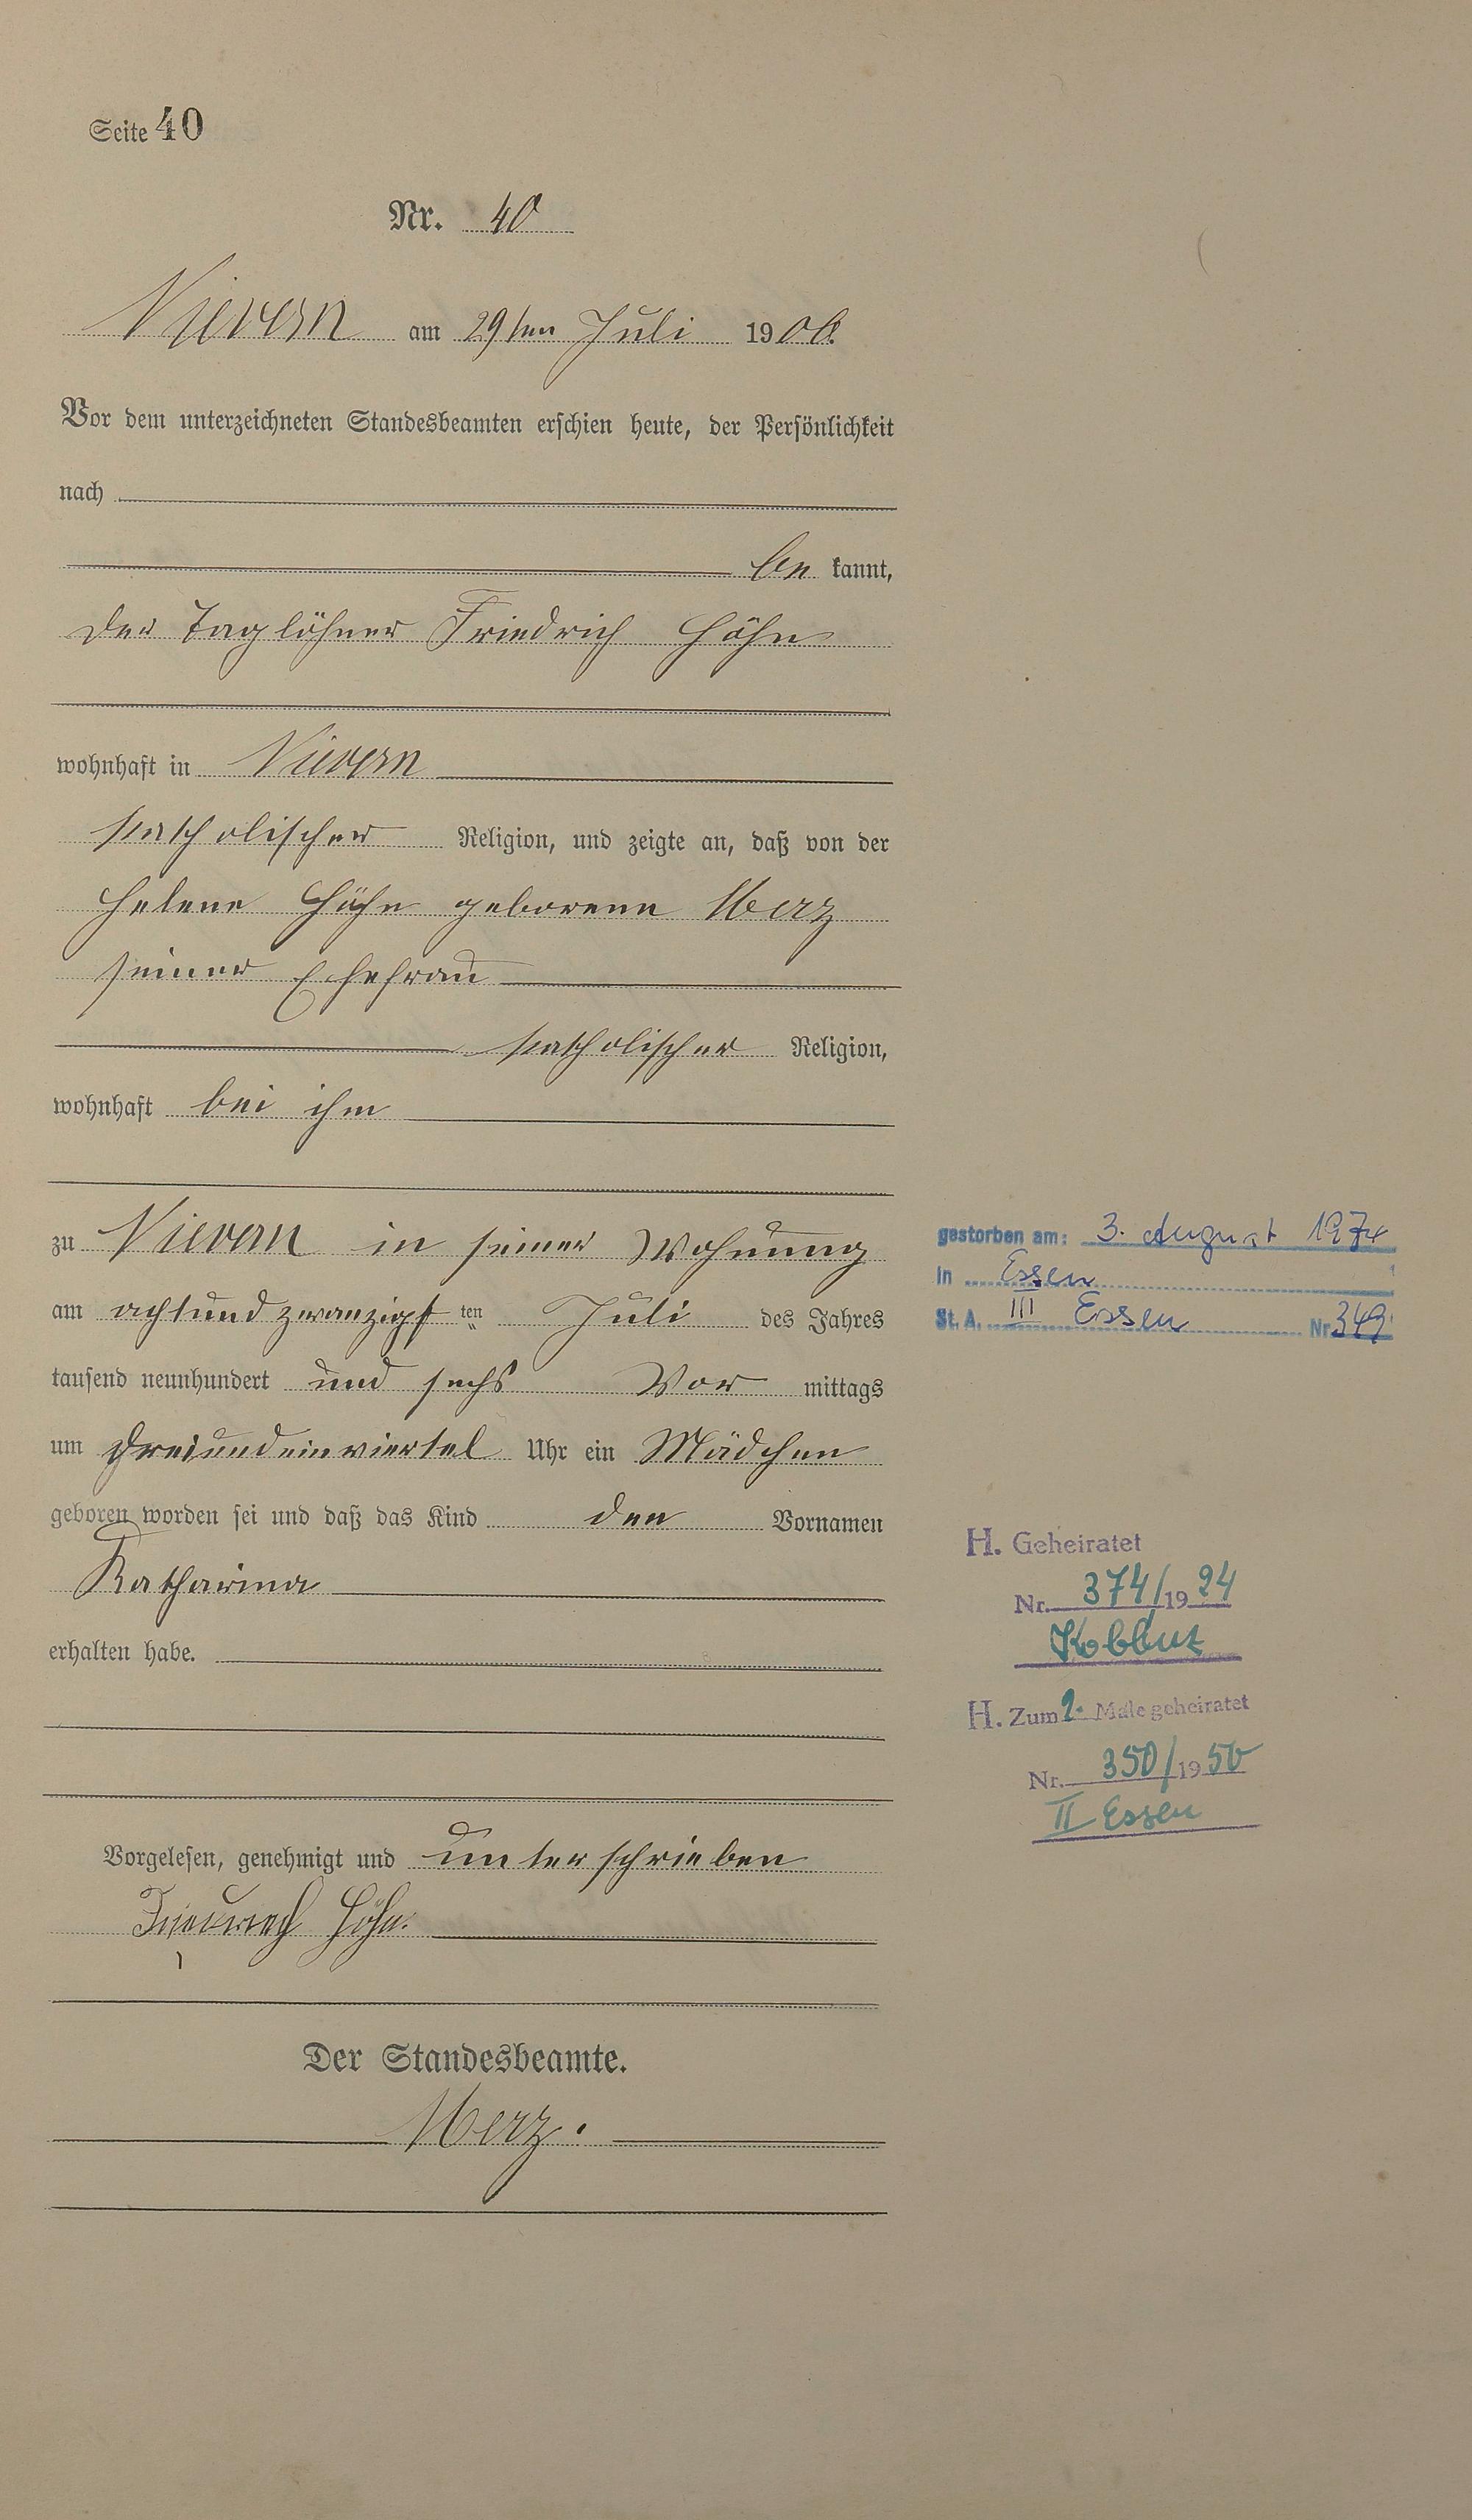 Seite 40
Nr. 40
Nievern am 29ten Juli 1906.
Vor dem unterzeichneten Standesbeamten erschien heute, der Persönlichkeit
nach
be kannt,
der Taglöhner Friedrich Höhn
wohnhaft in Nievern
katholischer Religion, und zeigte an, daß von der
Helene Höhn geborene Merz
seiner Ehefrau
katholischer Religion,
wohnhaft bei ihm
zu Nievern in seiner Wohnung
am achtundzwanzigst ten Juli des Jahres
tausend neunhundert und sechs Vor mittags
um dreiundeinviertel Uhr ein Mädchen
geboren worden sei und daß das Kind den Vornamen
Katharina
erhalten habe.
Vorgelesen, genehmigt und unterschrieben
Friedrich Höhn.
Der Standesbeamte.
Merz.
gestorben am: 3. August 1974
in Essen
St. A. III Essen Nr 349
H. Geheiratet
Nr. 374/1924
Koblenz
H. Zum 2. Male geheiratet
Nr. 350/1950
II Essen